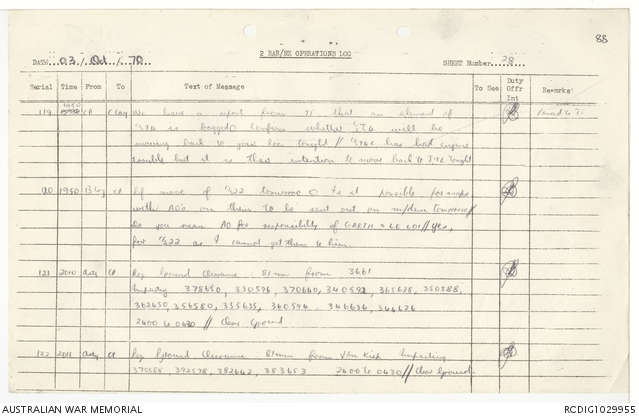 88
2 RAR/NZ OPERATIONS LOG
DATE 03 / Oct / 70 SHEET Number 28
Serial Time From To Text of Message To See Duty Offr Int Remarks
119 CP C Coy We have a report from that an element of
is bogged Confirm whether will be
moving back to your loc tonight // has had engine
trouble but it is their intention to move back to tonight
1950 B Coy CP Ref move of tomorrow Is it possible for maps
with AO's on them to be sent out on tomorrow //
Do you mean AO for responsibility of // Yes,
for as I cannot get them to him
121 2010 Arty CP Req Ground Clearance 81mm from 3661
Impacting 378650, 350594, 370660, 340592, 365628, 350588,
362650, 356580, 355635, 360594 346636, 344626
2400 to 0430 // Clear Ground
122 2011 Arty CP Req Ground Clearance 81mm from Impacting
370588, 392578, 382642, 383653 2400 to 0430 // Clear Ground
AUSTRALIAN WAR MEMORIAL RCDIG1029955